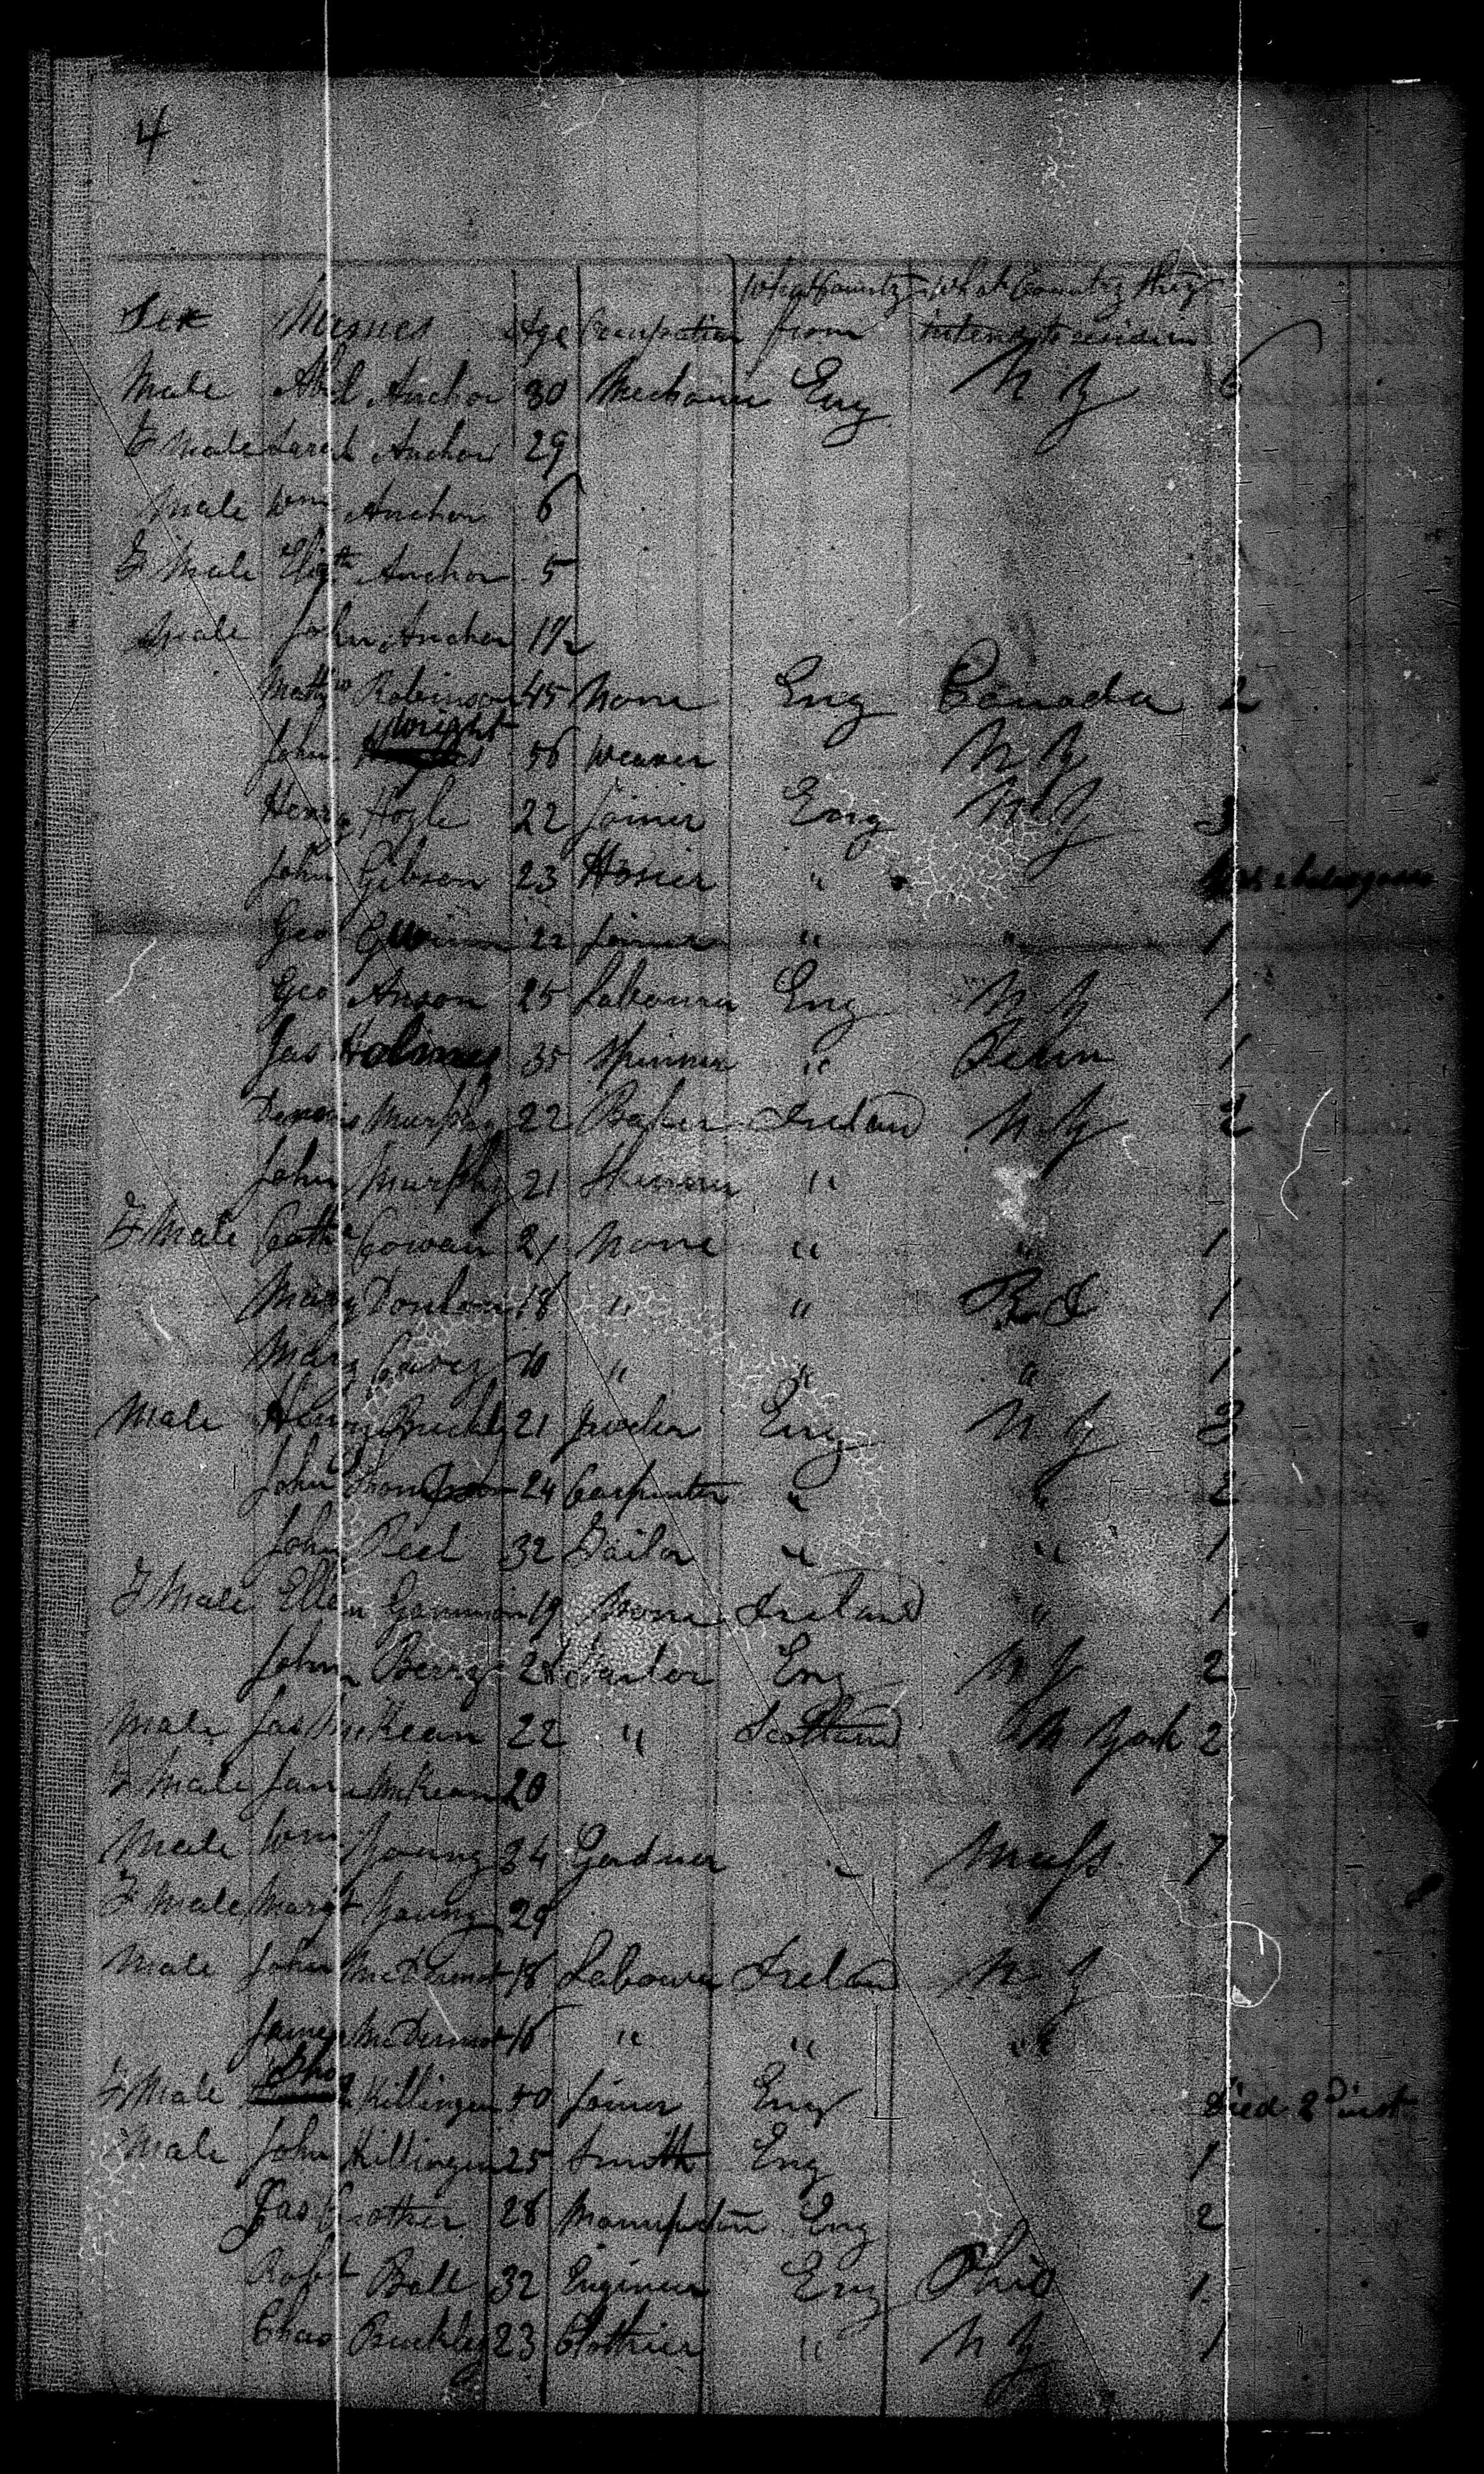 4
What Country What Country they
Sex Names Age Occupation from intend to reside in
Male Abel Anchor 30 Mechanic Eng N Y 6
F Male Sarah Anchor 29
Male Wm Anchor 6
F Male Elizth Anchor 5
Male John Anchor 1 1/2
Matthw Robinson 45 None Eng Canada 2
John Wright 56 Weaver N Y
Henry Hogle 22 Joiner Eng N Y 3
John Gibson 23 Hosier "
Geo 22 Joiner " " 1
Geo Anson 25 Labourer Eng N Y 1
Jas Holmes 35 Spinner " Penn 1
Dennis Murphy 22 Baker Ireland N Y 2
John Murphy 21 "
F Male Cathe Cowan 21 None " " 1
Mary Donlon 18 " " R I 1
Mary Carey 10 " " " 1
Male Henry 21 Eng N Y 3
John Thompson 24 Carpenter " " 2
John Peel 32 Tailor " " 1
F Male Ellen 19 None Ireland " 1
John Berry Eng N Y 2
Male Jas McKean 22 " Scotland N York 2
F Male Jane McKean 20
Male Wm Young 34 Gardner " Mass 7
F Male Margt Young 29
Male John McDermot 18 Labourer Ireland N Y
James McDermot 16 " " "
F Male Killinger 50 Joiner Eng Died 2d inst
Male John Killinger 25 Smith Eng 1
Jas Crother 28 Eng 2
Robt Ball 32 Engineer Eng Ohio 1
Chas Buckley 23 Clothier " N Y 1